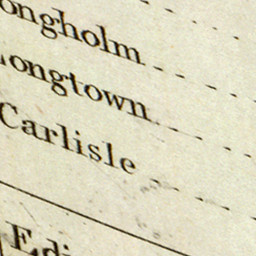 ongholm
ongtown
Carlisle
Edi